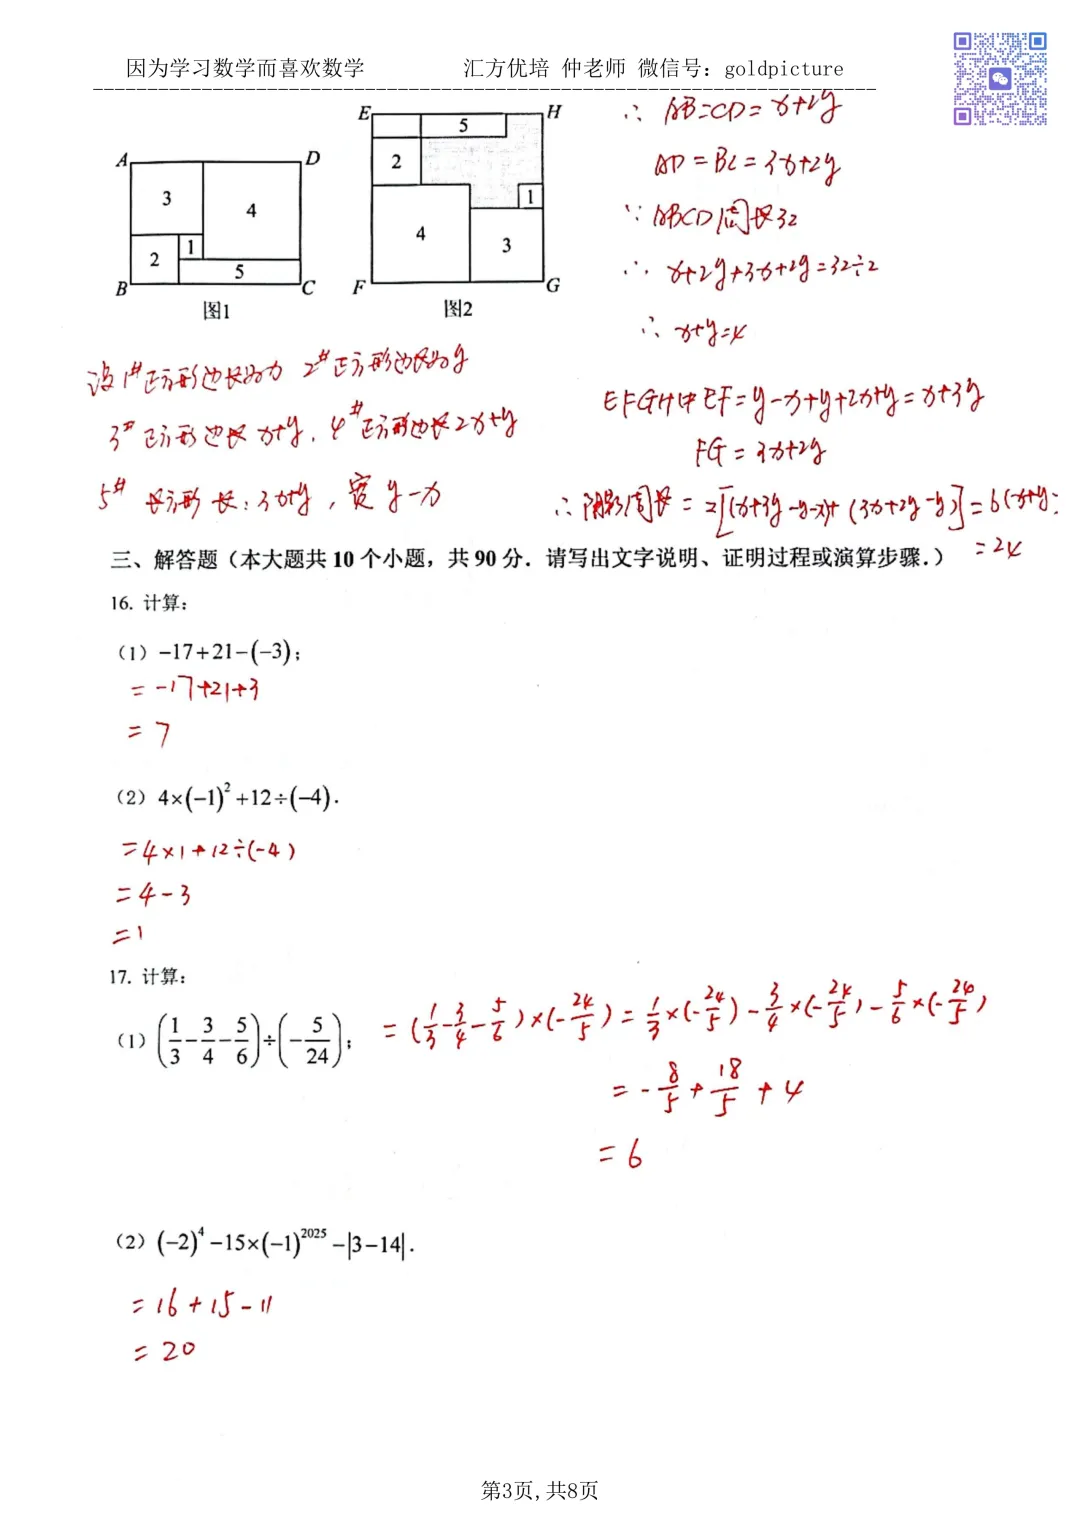 因为学习数学而喜欢数学 汇方优培 仲老师 微信号：goldpicture
A D
3 4
2 1
5
B C
图1
E H
5
2
1
4 3
F G
图2
∴ AB=CD=x+2y
AD=BC=3x+2y
∵ ABCD周长32
∴ x+2y+3x+2y=32÷2
∴ x+y=4
设1#正方形边长为x 2#正方形边长为y
3#正方形边长x+y, 4#正方形边长2x+y
5# 长方形 长:3x+y, 宽 y-x
EFGH中EF=y-x+y+2x+y=x+3y
FG=3x+2y
∴ 阴影周长=2[(x+3y-y-x)+(3x+2y-y)]=6(x+y)
=24
三、解答题（本大题共 10 个小题，共 90 分．请写出文字说明、证明过程或演算步骤．）
16. 计算：
（1）−17+21−(−3)；
=-17+21+3
=7
（2）4×(−1)²+12÷(−4)．
=4×1+12÷(-4)
=4-3
=1
17. 计算：
（1）(1/3−3/4−5/6)÷(−5/24)；
=(1/3-3/4-5/6)×(-24/5)=1/3×(-24/5)-3/4×(-24/5)-5/6×(-24/5)
=-8/5+18/5+4
=6
（2）(−2)⁴−15×(−1)²⁰²⁵−|3−14|．
=16+15-11
=20
第3页,共8页